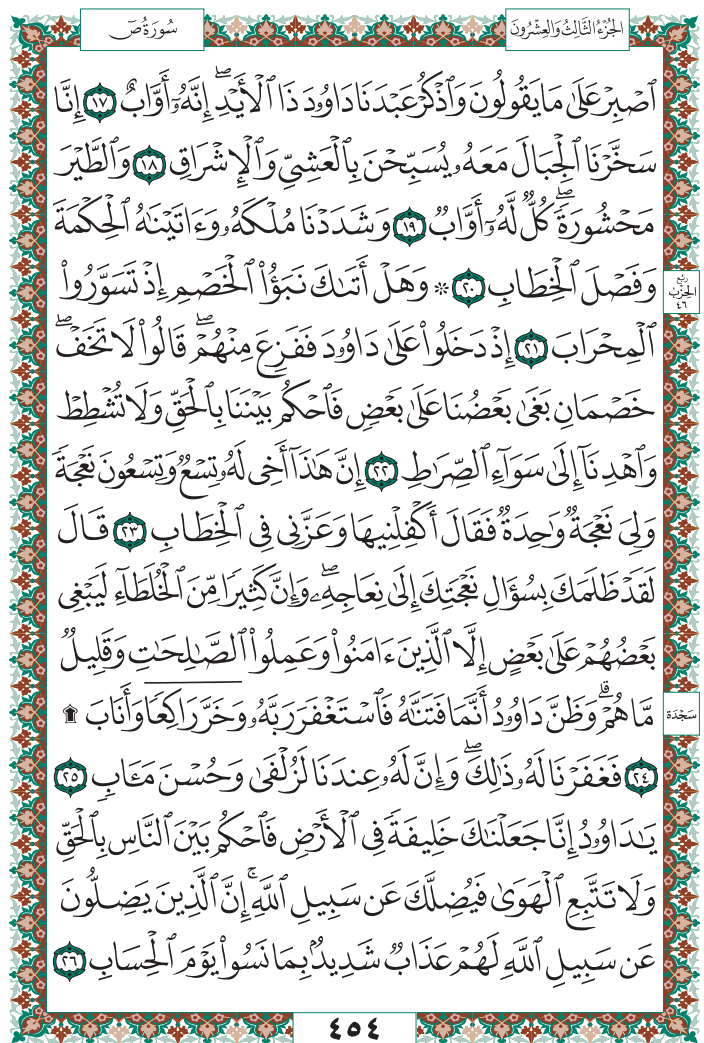 الجُزْءُ الثَّالِثُ وَالعِشْرُونَ
سُورَةُ صٓ
ٱصْبِرْ عَلَىٰ مَا يَقُولُونَ وَٱذْكُرْ عَبْدَنَا دَاوُۥدَ ذَا ٱلْأَيْدِ ۖ إِنَّهُۥٓ أَوَّابٌ ١٧ إِنَّا
سَخَّرْنَا ٱلْجِبَالَ مَعَهُۥ يُسَبِّحْنَ بِٱلْعَشِىِّ وَٱلْإِشْرَاقِ ١٨ وَٱلطَّيْرَ
مَحْشُورَةً ۖ كُلٌّ لَّهُۥٓ أَوَّابٌ ١٩ وَشَدَدْنَا مُلْكَهُۥ وَءَاتَيْنَـٰهُ ٱلْحِكْمَةَ
وَفَصْلَ ٱلْخِطَابِ ٢٠ * وَهَلْ أَتَىٰكَ نَبَؤُا۟ ٱلْخَصْمِ إِذْ تَسَوَّرُوا۟
رُبْع الحِزْب ٤٦
ٱلْمِحْرَابَ ٢١ إِذْ دَخَلُوا۟ عَلَىٰ دَاوُۥدَ فَفَزِعَ مِنْهُمْ ۖ قَالُوا۟ لَا تَخَفْ ۖ
خَصْمَانِ بَغَىٰ بَعْضُنَا عَلَىٰ بَعْضٍ فَٱحْكُم بَيْنَنَا بِٱلْحَقِّ وَلَا تُشْطِطْ
وَٱهْدِنَآ إِلَىٰ سَوَآءِ ٱلصِّرَٰطِ ٢٢ إِنَّ هَـٰذَآ أَخِى لَهُۥ تِسْعٌ وَتِسْعُونَ نَعْجَةً
وَلِىَ نَعْجَةٌ وَٰحِدَةٌ فَقَالَ أَكْفِلْنِيهَا وَعَزَّنِى فِى ٱلْخِطَابِ ٢٣ قَالَ
لَقَدْ ظَلَمَكَ بِسُؤَالِ نَعْجَتِكَ إِلَىٰ نِعَاجِهِۦ ۖ وَإِنَّ كَثِيرًا مِّنَ ٱلْخُلَطَآءِ لَيَبْغِى
بَعْضُهُمْ عَلَىٰ بَعْضٍ إِلَّا ٱلَّذِينَ ءَامَنُوا۟ وَعَمِلُوا۟ ٱلصَّـٰلِحَـٰتِ وَقَلِيلٌ
مَّا هُمْ ۗ وَظَنَّ دَاوُۥدُ أَنَّمَا فَتَنَّـٰهُ فَٱسْتَغْفَرَ رَبَّهُۥ وَخَرَّ رَاكِعًا وَأَنَابَ ۩
سَجْدَة
٢٤ فَغَفَرْنَا لَهُۥ ذَٰلِكَ ۖ وَإِنَّ لَهُۥ عِندَنَا لَزُلْفَىٰ وَحُسْنَ مَـَٔابٍ ٢٥
يَـٰدَاوُۥدُ إِنَّا جَعَلْنَـٰكَ خَلِيفَةً فِى ٱلْأَرْضِ فَٱحْكُم بَيْنَ ٱلنَّاسِ بِٱلْحَقِّ
وَلَا تَتَّبِعِ ٱلْهَوَىٰ فَيُضِلَّكَ عَن سَبِيلِ ٱللَّهِ ۚ إِنَّ ٱلَّذِينَ يَضِلُّونَ
عَن سَبِيلِ ٱللَّهِ لَهُمْ عَذَابٌ شَدِيدٌۢ بِمَا نَسُوا۟ يَوْمَ ٱلْحِسَابِ ٢٦
٤٥٤